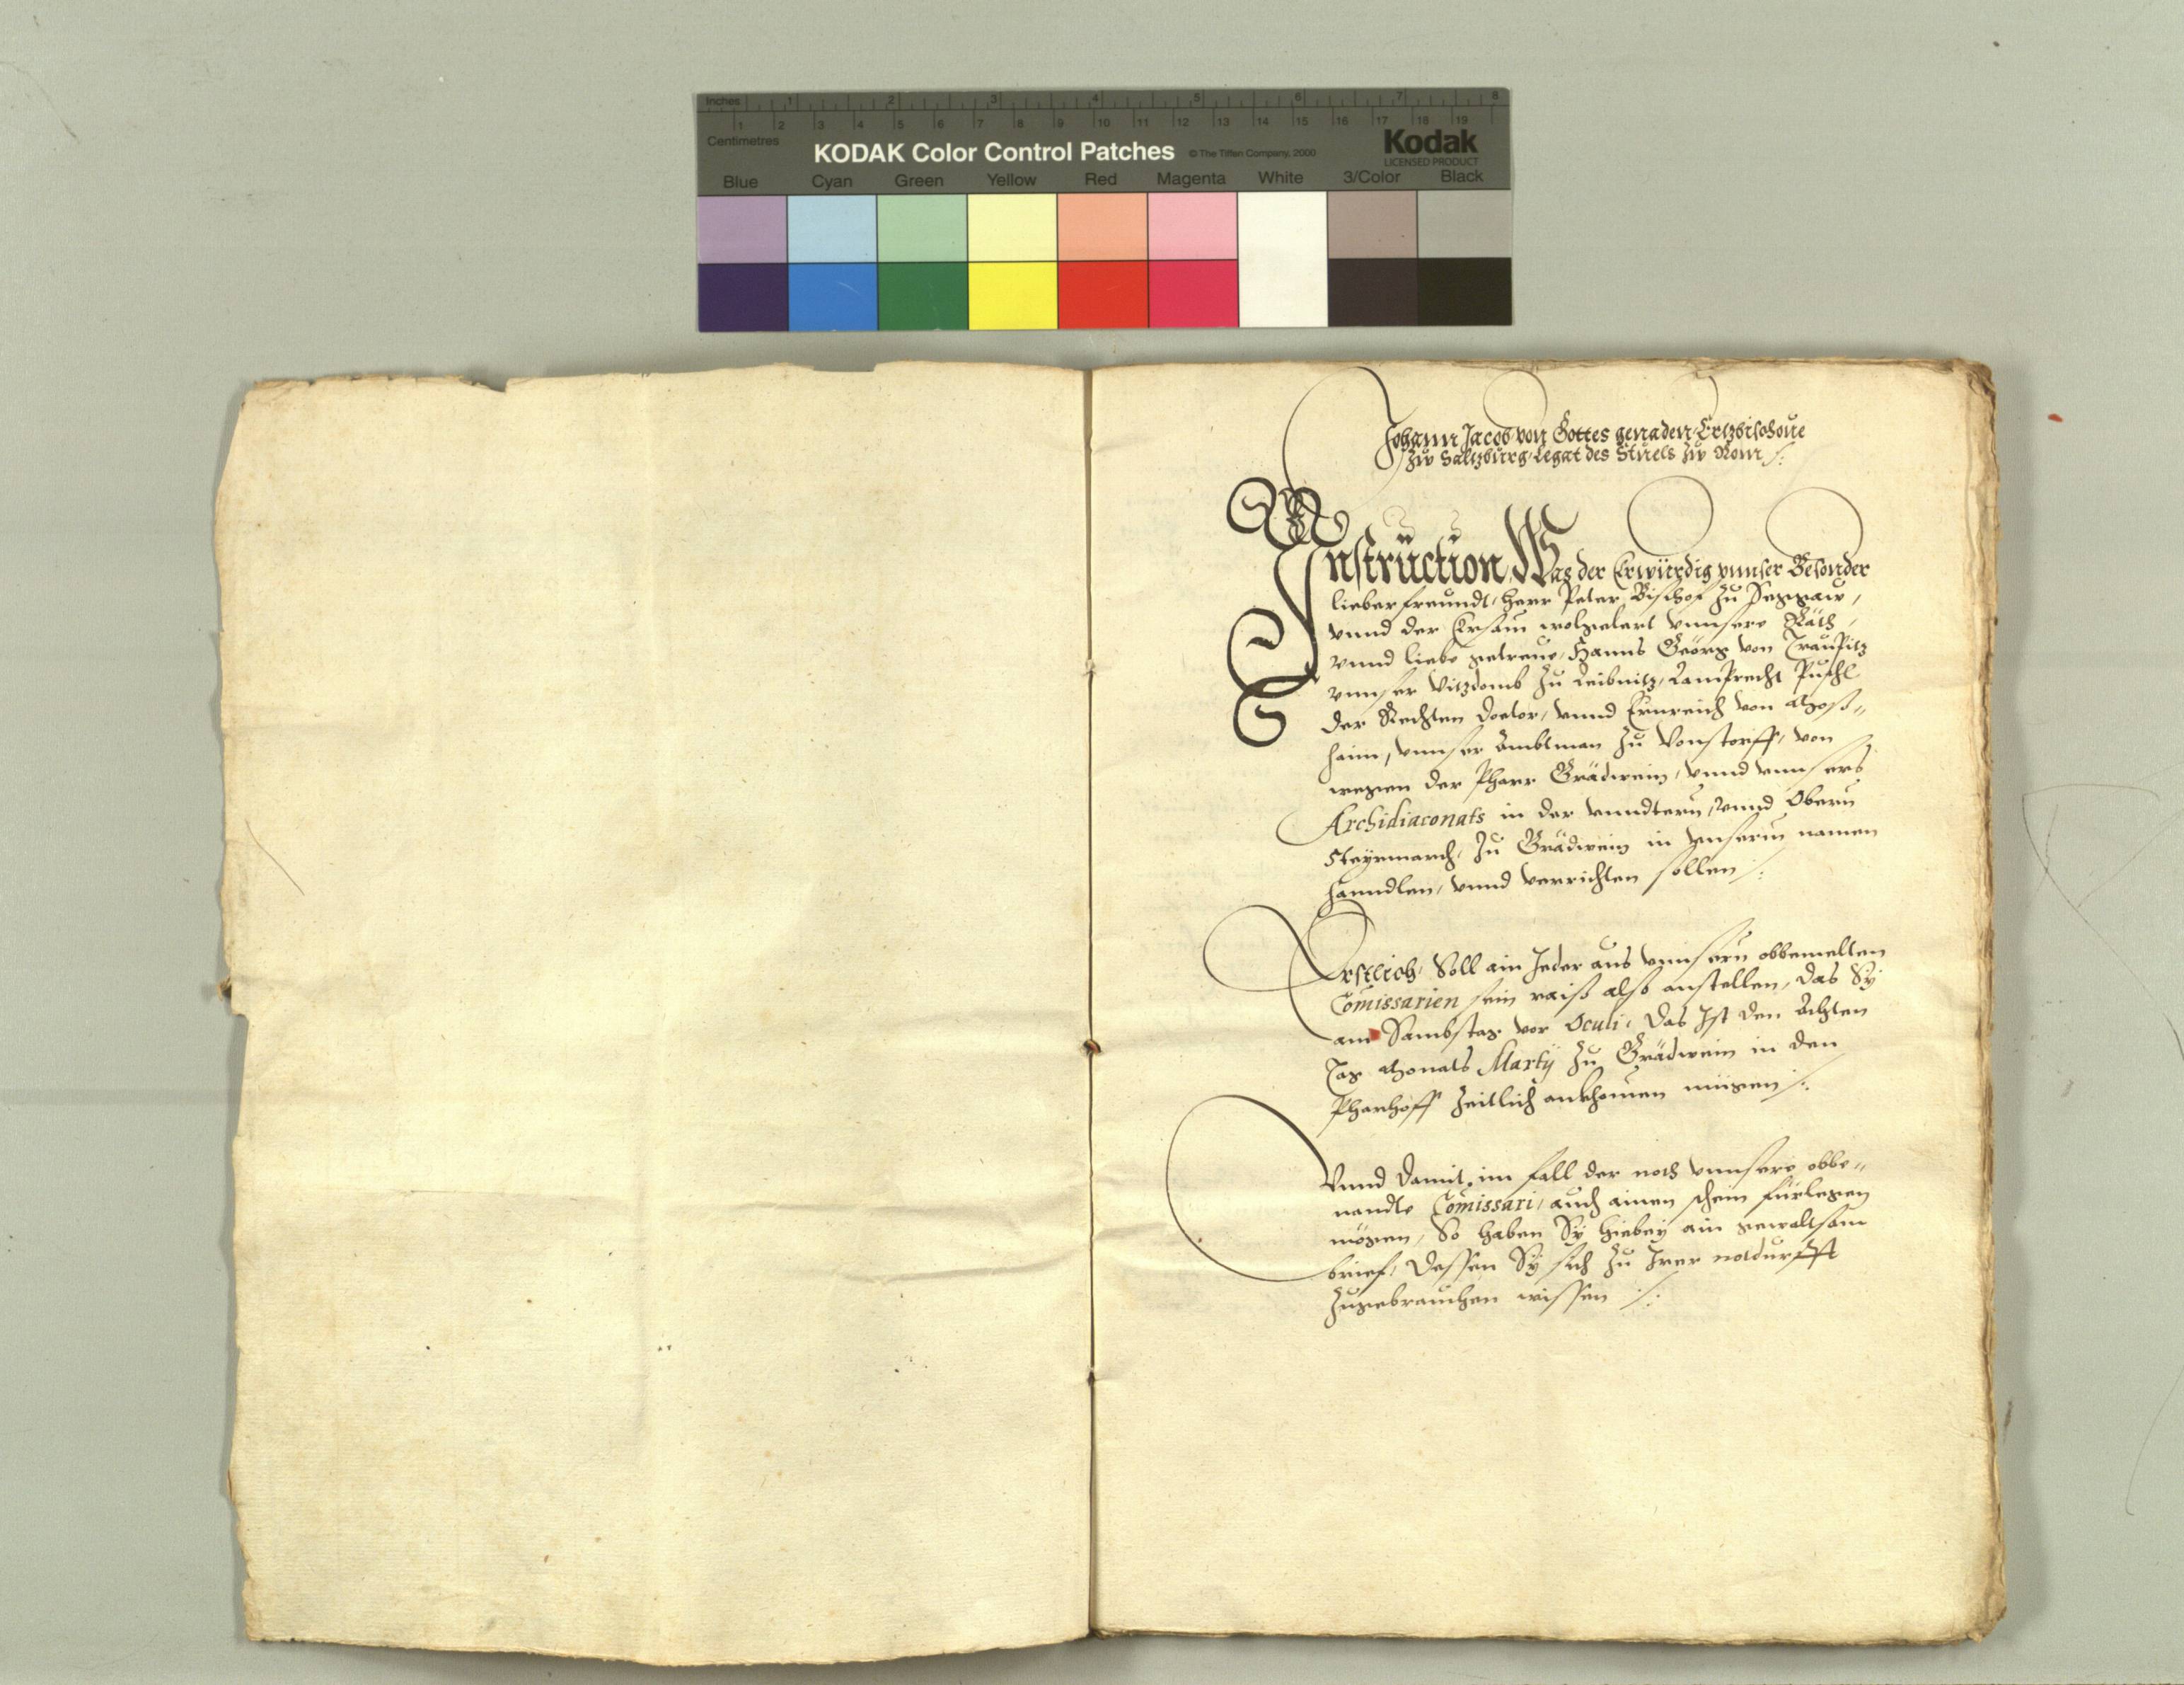 Inches 1 2 3 4 5 6 7 8
Centimetres 1 2 3 4 5 6 7 8 9 10 11 12 13 14 15 16 17 18 19
KODAK Color Control Patches © The Tiffen Company, 2000 Kodak
LICENSED PRODUCT
Blue Cyan Green Yellow Red Magenta White 3/Color Black
Johann Jacob von Gottes genaden Ertzbischoue
zw Saltzburg, Legat des Stuels zw Rom /:
Instruction, Was der Erwürdig vnnser Besonder
lieber freundt, herr Peter Bischof zu Seggaw,
vnnd der Ersam wolgelert vnnsere Räth,
vnnd liebe getreue, Hanns Geörg von
vnnser Vitzdomb zu Leibnitz, Lamprecht
der Rechten Doctor, vnnd Ernreich von Mosß"
haim, vnnser Ambtman zu Vonstorff, von
wegen der Pharr Grädwein, vnnd vnnsers
Archidiaconats in der vnndtern, vnnd Obern
Steyrmarch, zu Grädwein in vnserm namen
hanndlen, vnnd verrichten sollen /:
Erstlich, Soll ain Jeder aus vnnsern obbemelten
Comissarien sein raiß also anstellen, das Sÿ
am Sambstag vor Oculi, das Ist den Achten
Tag Monats Martÿ zu Grädwein in den
Pharhoff zeitlich ankhomen mügen /:
Vnnd damit im fall der noth vnnsere obbe"
nandte Comissari, auch ainen schein fürlegen
mögen, So haben Sÿ hiebeÿ ain gewaltsam
brief, dessen Sÿ sich zu Irer notdurfft
zugebrauchen wissen /: